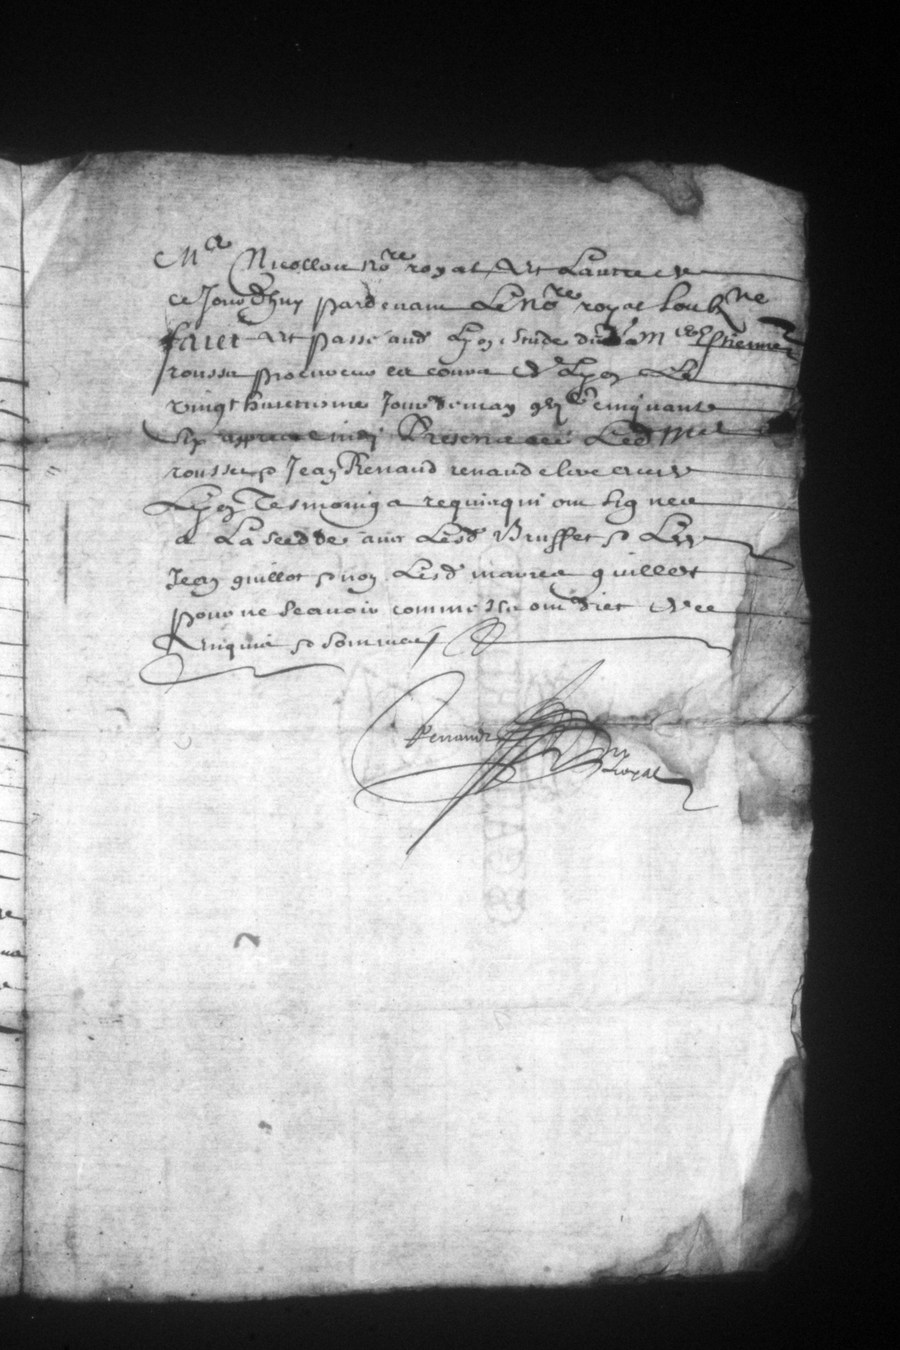 Me Nicollau nore royal et lautre de
ce Jourdhuy pardevant le nore royal soubzne
faict et passé aud Lyon estude dud Me Estienne
rousset procureur ez cours de Lyon le
vingt huictiesme Jour de may gbjc cinquante
six appres midj Presence dud Me
rousset & Jean Renaud clerc
Lyon Tesmoingz requis qui ont signez
a la cedde avec Lesd Bruffet & Led
Jean guillot & non Lesd guillot
pour ne scavoir comme Ilz ont dict de ce
Enquis & sommez
Renaud
royal